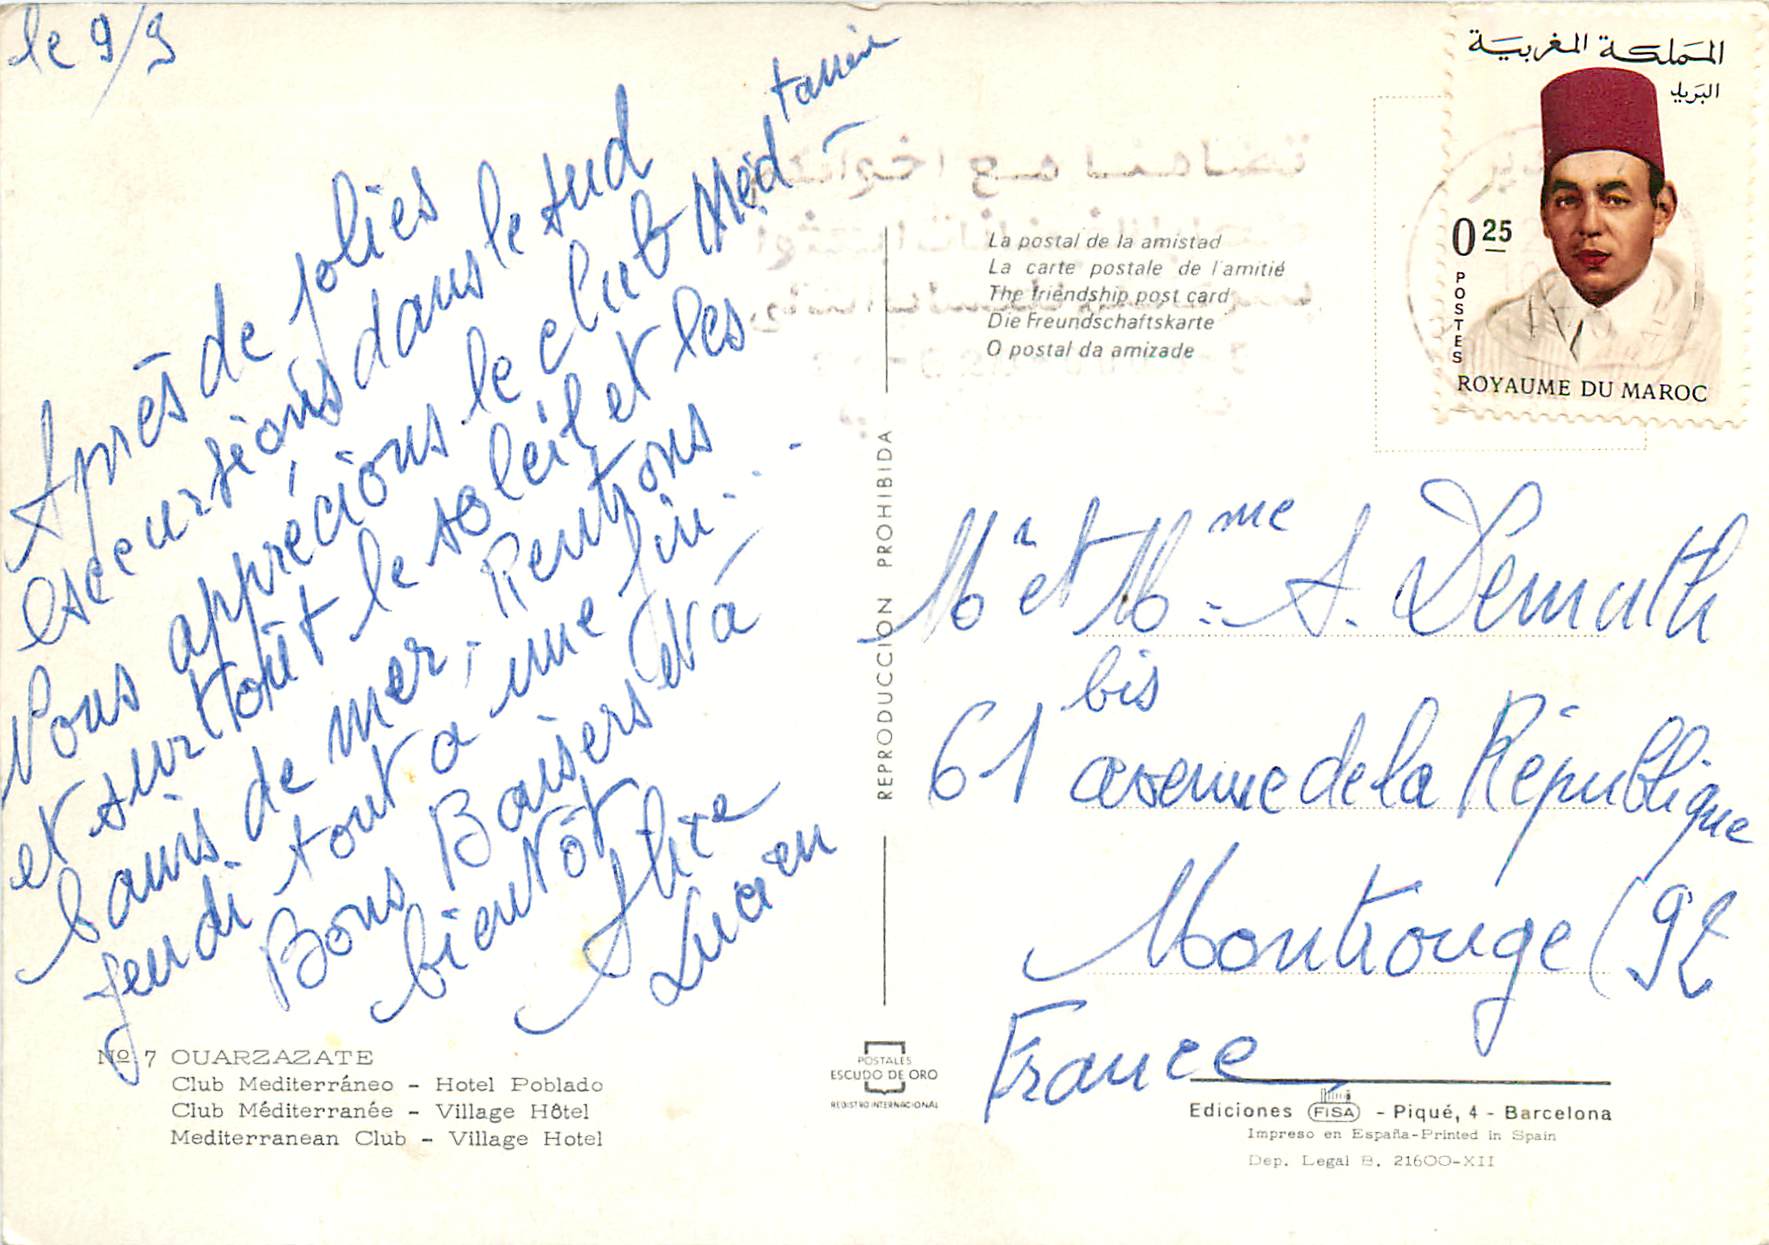 le 9/9
Après de jolies
excursions dans le sud
Nous apprécions le club Méd
et surtout le soleil et les
bains de mer. Rentrons
jeudi tout a une fin...
Bons Baisers et à
bientôt
Lucien
المملكة المغربية
البريد
0.25
POSTES
ROYAUME DU MAROC
La postal de la amistad
La carte postale de l'amitié
The friendship post card
Die Freundschaftskarte
O postal da amizade
REPRODUCCION PROHIBIDA
Mr et Mme A. Demuth
61 bis avenue de la République
Montrouge (92
France
Nº 7 OUARZAZATE
Club Mediterráneo - Hotel Poblado
Club Méditerranée - Village Hôtel
Mediterranean Club - Village Hotel
POSTALES
ESCUDO DE ORO
REGISTRO INTERNACIONAL
Ediciones FISA - Piqué, 4 - Barcelona
Impreso en España-Printed in Spain
Dep. Legal B. 21600-XII